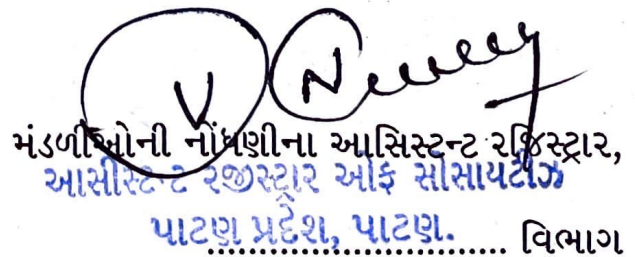 મંડળીઓની નોંધણીના આસિસ્ટન્ટ રજિસ્ટ્રાર,
આસીસ્ટન્ટ રજીસ્ટ્રાર ઓફ સોસાયટીઝ
પાટણ પ્રદેશ, પાટણ. વિભાગ